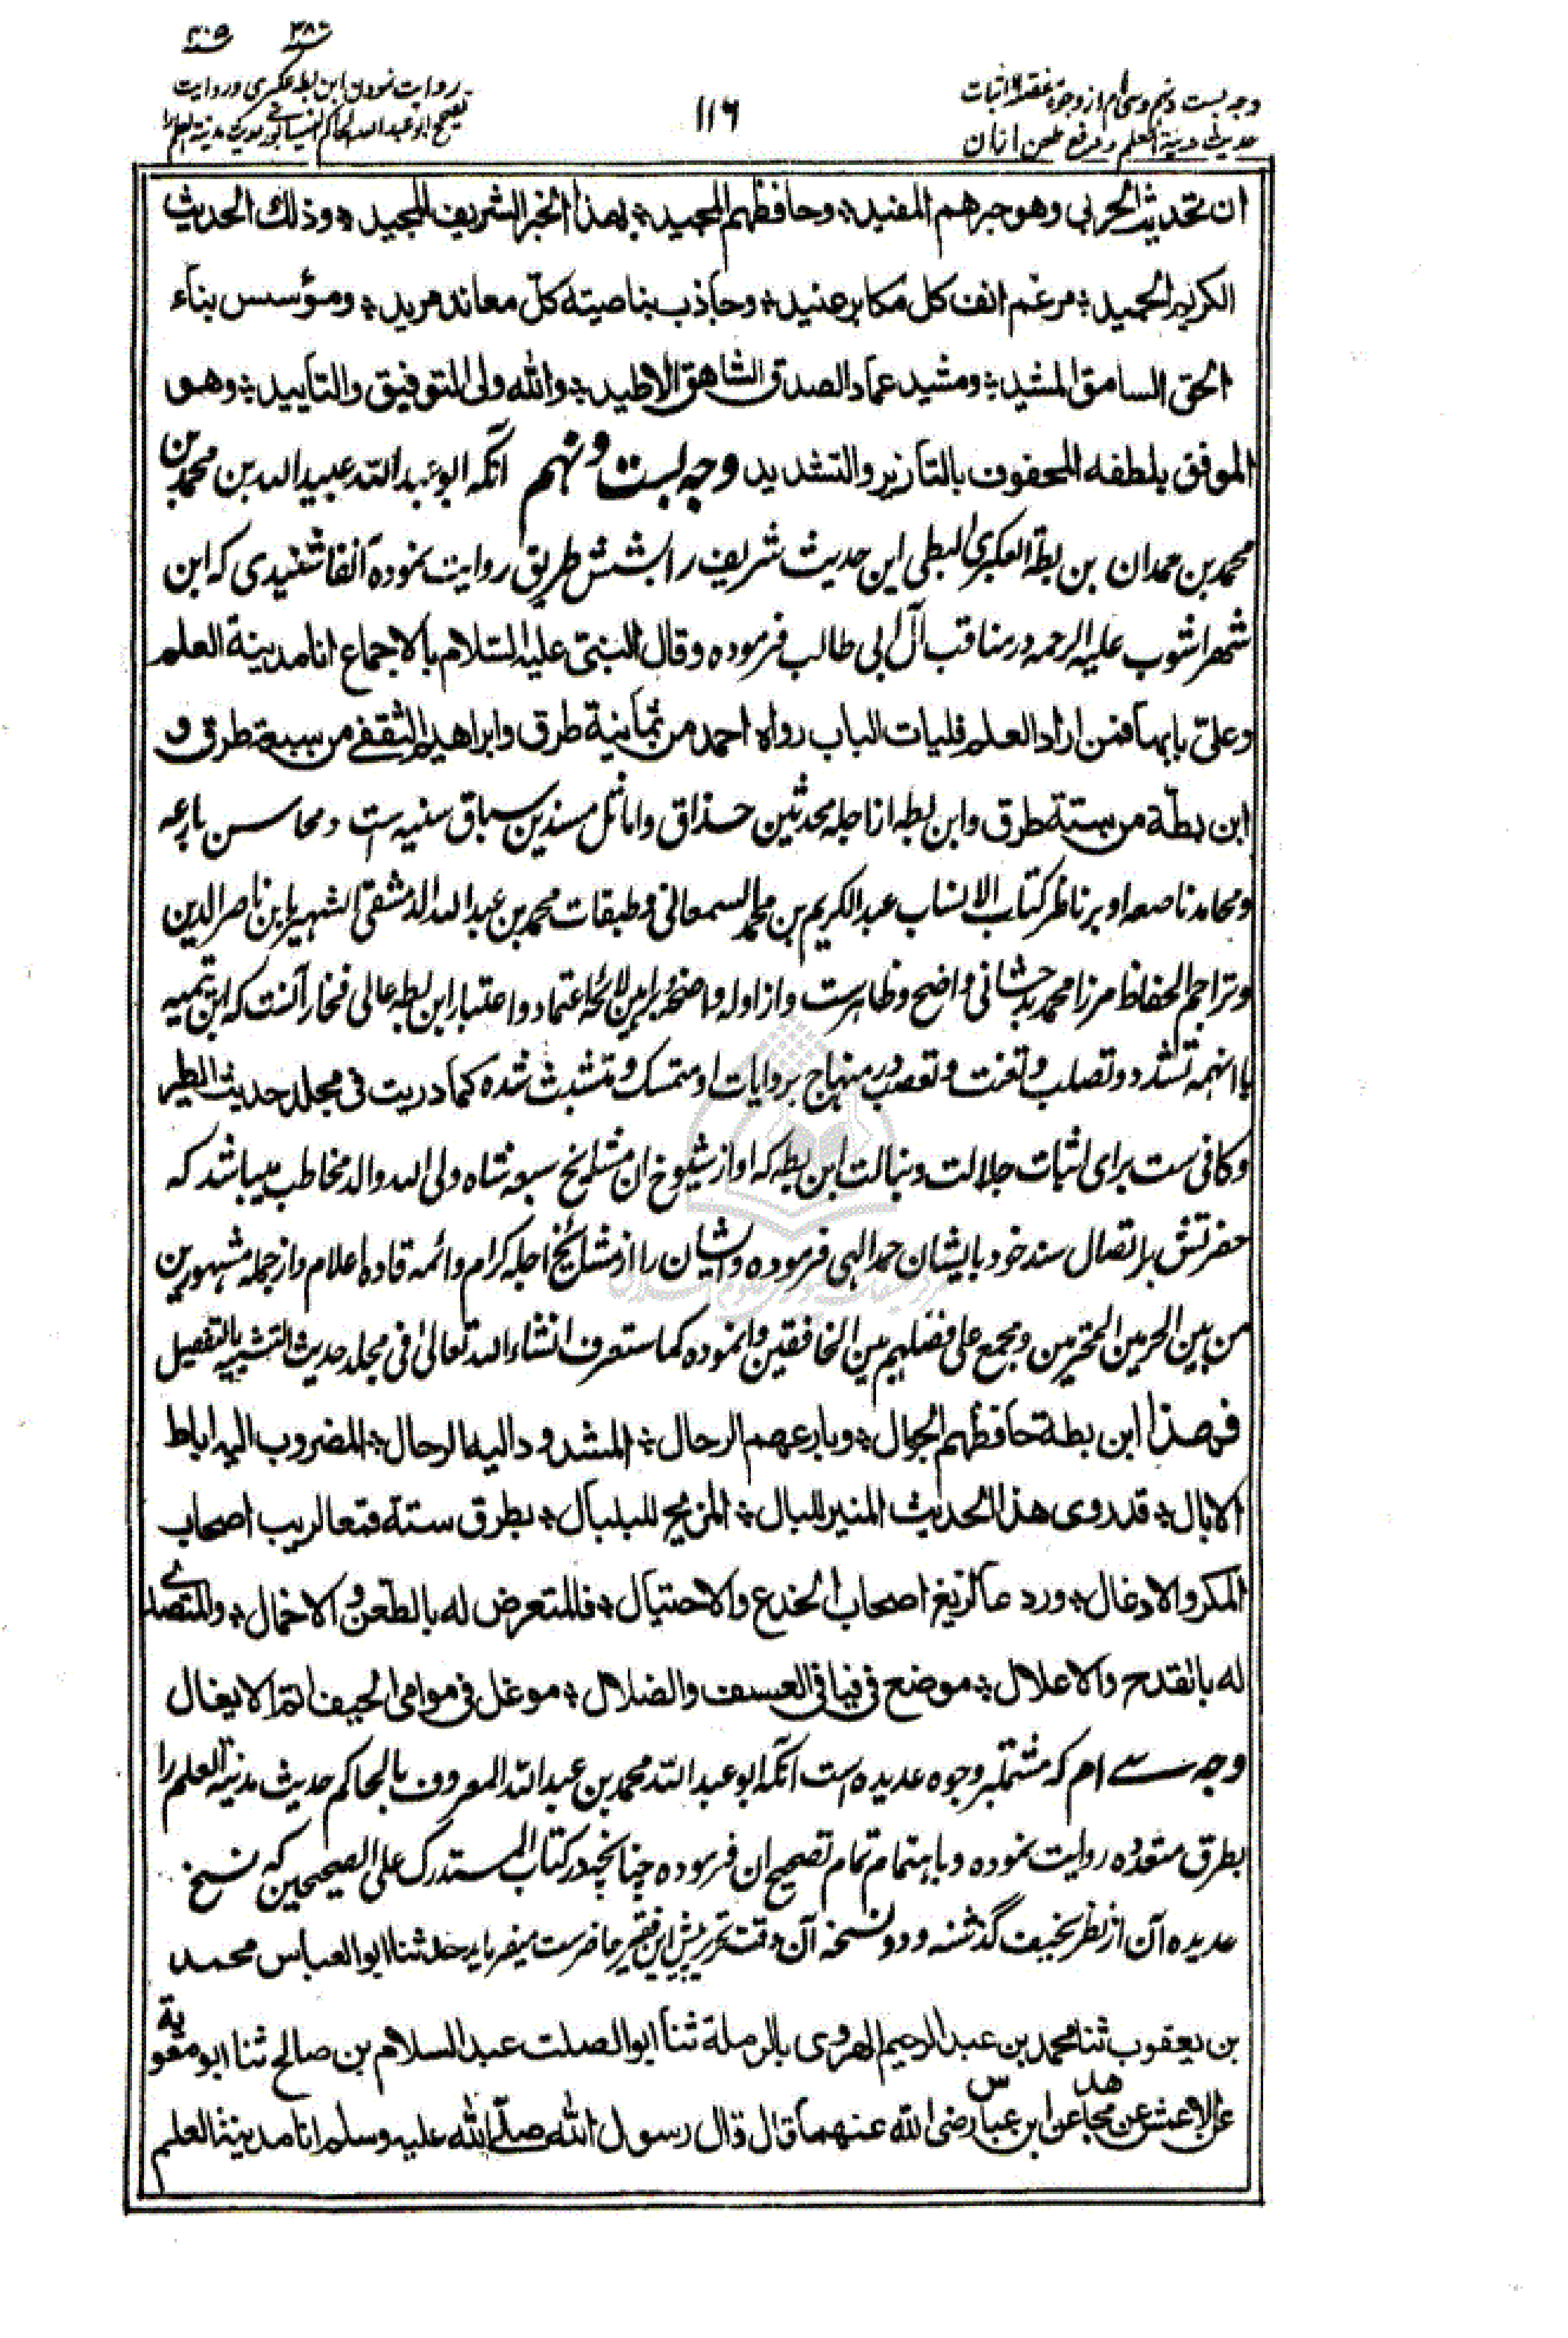 وجه بست و نهم و سی ام از وجوه مفقدة اثبات
حدیث مدینة العلم و رفع طعن انان
۱۱۶
سنه ۳۸۷ سنه ۴۰۵
روایت نمودن ابن بطه عکبری و روایت
تصحیح ابو عبد الله الحاکم النیسابوری حدیث مدینة العلم را
ان تحدیث الحربی وهو حبرهم المفید * وحافظهم المجید * بهذا الخبر الشریف المجید * وذلك الحدیث
الکریم الحمید * مرغم انف کل مکابر عنید * وجاذب بناصیته کل معاند مرید * ومؤسس بناء
الحق السامق المشید * ومشید عماد الصدق الشاهق الاطید * والله ولی التوفیق والتأیید * وهو
الموفق بلطفه المحفوف بالتأزیر والتشدید وجه بست و نهم آنکه ابو عبد الله عبید الله بن محمد بن
محمد بن حمدان بن بطة العکبری البطی این حدیث شریف را بشش طریق روایت نموده آنفا شنیدی که ابن
شهراشوب علیه الرحمه در مناقب آل ابی طالب فرموده وقال النبی علیه السلام بالاجماع انا مدینة العلم
وعلی بابها فمن اراد العلم فلیات الباب رواه احمد من ثمانیة طرق وابراهیم الثقفی من سبعة طرق و
ابن بطة من ستة طرق وابن بطه از اجله محدثین حذاق و اماثل مسندین سباق سنیه است و محاسن بارعه
و محامد ناصعه او بر ناظر کتاب الانساب عبد الکریم بن محمد السمعانی و طبقات محمد بن عبد الله الدمشقی الشهیر بابن ناصر الدین
و تراجم الحفاظ مرزا محمد بدخشانی واضح و ظاهرست و از ادله واضحه و براهین لائحه اعتماد و اعتبار ابن بطه عالی فخار آنست که ابن تیمیه
با انهمه تشدد و تصلب و تعنت و تعصب در منهاج بروایات او متمسک و متشبث شده کما دریت فی مجلد حدیث الطیر
و کافی ست برای اثبات جلالت و نبالت ابن بطه که او از شیوخ ان مشایخ سبعه شاه ولی الله والد مخاطب میباشد که
حضرتش بر اتصال سند خود بایشان حمد الهی فرموده و ایشان را از مشایخ اجله کرام و ائمه قاده اعلام و از جمله مشهورین
من بین الحرمین المحترمین و مجمع علی فضلهم بین الخافقین وانموده کما ستعرف انشاء الله تعالی فی مجلد حدیث التشبیه بالتفصیل
فهذا ابن بطة حافظهم الجوال * وبارعهم الرحال * المشدود الیه الرحال * المضروب الیه اباط
الابال * قد روی هذا الحدیث المنیر للبال * المزیح للبلبال * بطرق ستة فتعا لریب اصحاب
المکر والادغال * ورد عا لزیغ اصحاب الخدع والاحتیال * فالمتعرض له بالطعن والاخمال * والمتصدی
له بالقدح والاعلال * موضع فی فیافی العسف والضلال * موغل فی موامی الحیف اتم الایغال
وجه سی ام که مشتمل بر وجوه عدیده است آنکه ابو عبد الله محمد بن عبد الله المعروف بالحاکم حدیث مدینة العلم را
بطرق متعدده روایت نموده و باهتمام تمام تصحیح ان فرموده چنانچه در کتاب المستدرک علی الصحیحین که نسخ
عدیده آن از نظر نحیف گذشته و دو نسخه آن وقت تحریر پیش این فقیر حاضرست میفرماید حدثنا ابو العباس محمد
بن یعقوب ثنا محمد بن عبد الرحیم الهروی بالرملة ثنا ابو الصلت عبد السلام بن صالح ثنا ابو معویة
عن الاعمش عن مجاهد عن ابن عباس رضی الله عنهما قال قال رسول الله صلی الله علیه وسلم انا مدینة العلم